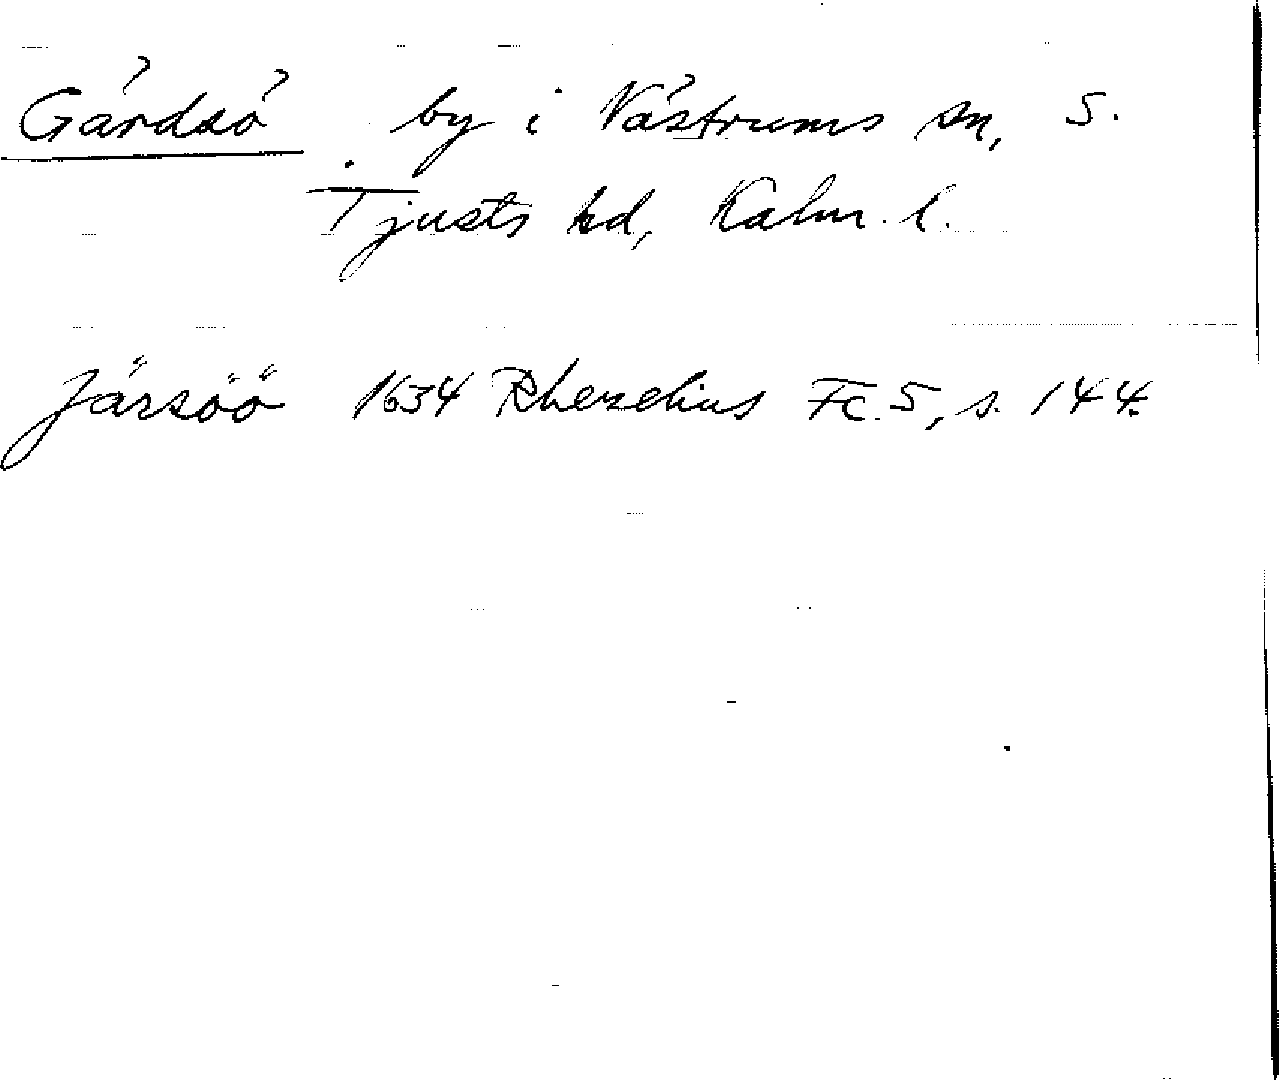 Gärdsö by i Västrums sn, S.
Tjusts hd, Kalm. l.
Järsöö 1634 Rhezelius Fc. 5, s. 144.